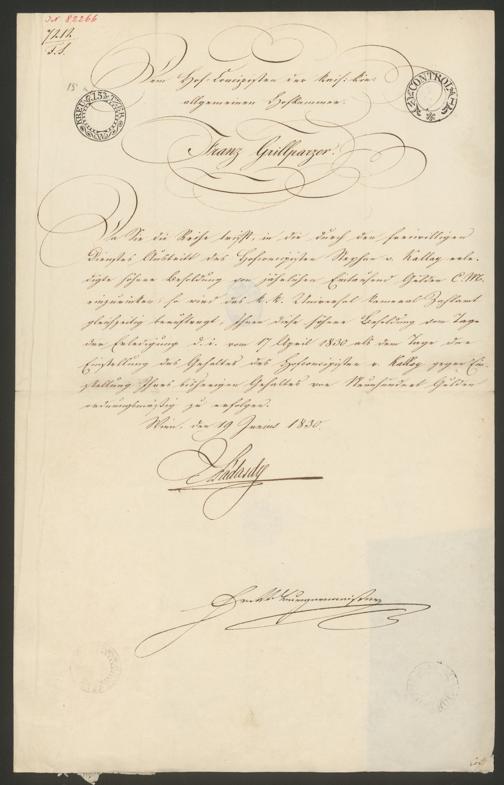 I.N. 82266
7212
Dem Hof-Concipisten der kais: kön:
allgemeinen Hofkammer.
Franz Grillparzer.
CONTROL
Da Sie die Reihe trifft, in die durch den freiwilligen
Dienstes Austritt des Hofconcipisten Stephan v. Kallay erle-
digte höhere Besoldung von jährlichen Eintausend Gulden C.M.
einzurücken, so wird das k. k. Universal Kameral Zahlamt
gleichzeitig beauftragt, Ihnen diese höhere Besoldung vom Tage
der Erledigung d. i. vom 17 April 1830 als dem Tage der
Einstellung des Gehaltes des Hofconcipisten v. Kallay gegen Ein-
stellung Ihres bisherigen Gehaltes von Neunhundert Gulden
ordnungsmäßig zu erfolgen.
Wien, den 19 Junius 1830.
Nádasdy